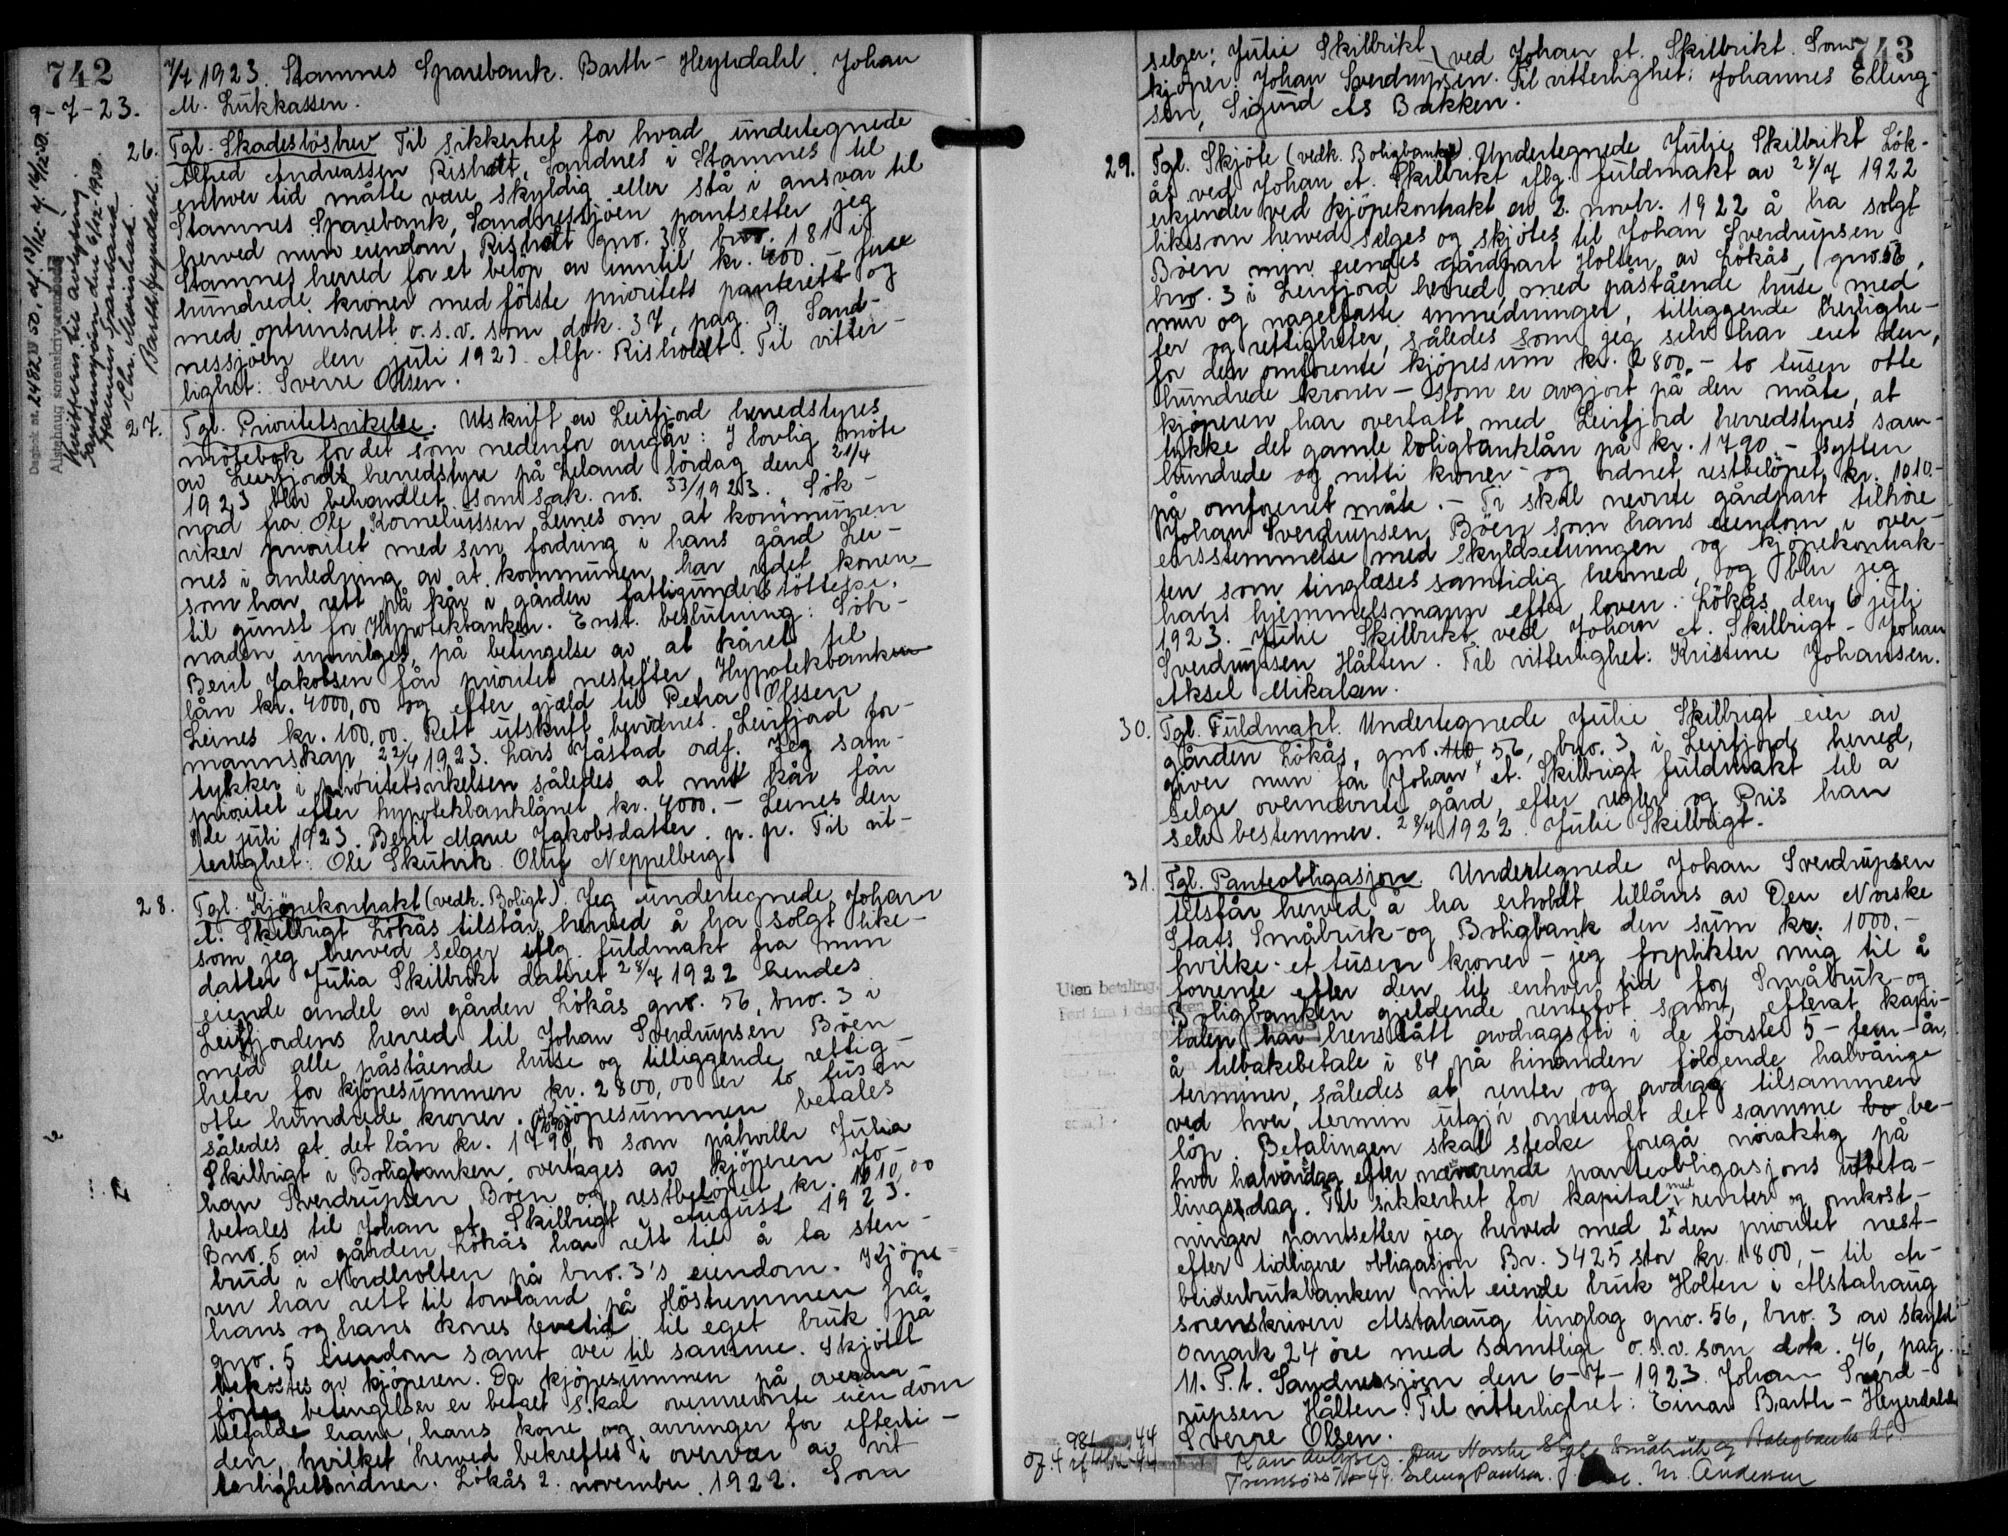 742
9-7-23.
7/7 1923. Stamnes Sparebank. Barth-Heyerdahl. Johan
M. Lukkassen.
26. Tgl. Skadeslösbrev Til sikkerhet for hvad undertegnede
Alfred Andreassen Risholt, Sandnes i Stamnes til
enhver tid måtte være skyldig eller stå i ansvar til
Stamnes Sparebank, Sandnessjöen pantsetter jeg
herved min eiendom Risholt gno. 38, bno. 181 i
Stamnes herred for et belöp av inntil kr. 400.-
hundrede kroner med förste prioritets panterett og
med optrinsrett o.s.v. som dok. 37, pag. 9. Sand-
nessjöen den juli 1923. Alfr. Risholdt. Til vitter-
lighet: Sverre Olsen.
Dagbok nr. 2482 1950
Alstahaug sorenskriverembede
Kvittert til avlysning.
Sandnessjöen den 6/12 1950.
Stamnes Sparebank
Chr.
Barth-Heyerdahl.
27. Tgl. Prioritetsvikelse. Utskrift av Leirfjord herredstyres
mötebok for det som nedenfor angår: I lovlig möte
av Leirfjords herredstyre på Leland lördag den 21/4
1923 blev behandlet som sak. no. 33/1923. Sök-
nad fra Ole Korneliussen Leines om at kommunen
viker prioritet med sin fordring i hans gård Lei-
nes i anledning av at kommunen har ydet konen
som har rett på kår i gården fattigunderstöttelse,
til gunst for Hypotekbanken. Enst. beslutning: Sök-
naden innvilges på betingelse av at kåret til
Berit Jakobsen får prioritet nestefter Hypotekbanken
lån kr. 4000,00 og efter gjæld til Petra Olssen
Leines kr. 100,00. Rett utskrift bevidnes. Leirfjord for-
mannskap 22/4 1923. Lars Jåstad ordf. Jeg sam-
tykker i prioritetsvikelsen således at mitt kår får
prioritet efter hypotekbanklånet kr. 4000.- Leines den
8de juli 1923. Berit Marie Jakobsdatter. p. p. Til vit-
terlighet: Ole Skutvik. Oluf Neppelberg.
28. Tgl. Kjöpekontrakt (vedk. Boligb.). Jeg undertegnede Johan
A. Skilbrigt Lökås tilstår herved å ha solgt like-
som jeg herved selger iflg. fuldmakt fra min
datter Julia Skilbrikt dateret 28/7 1922 hendes
eiende andel av gården Lökås gno. 56, bno. 3 i
Leirfjordens herred til Johan Sverdrupsen Böen
med alle påstående huse og tilliggende rettig-
heter for kjöpesummen kr. 2800,00 er to tusen
otte hundrede kroner. Kjöpesummen betales
således at det lån kr. 1790,00 som påhviler Julia
Skilbrigt i Boligbanken, overtages av kjöperen Jo-
han Sverdrupsen Böen og restbelöpet kr. 1010,00
betales til Johan A. Skilbrigt i August 1923.
Bno. 5 av gården Lökås har rett til å ta sten-
brud i Nordholten på bno. 3's eiendom. Kjöpe-
ren har rett til torvland på Höstummen på
hans og hans kones levetid til eget bruk på
gno. 5 eiendom samt vei til samme. Skjötet
bekostes av kjöperen. Da kjöpesummen på ovenan-
förte betingelser er betalt skal ovennevnte eiendom
tilfalde ham, hans kone og arvinger for efterti-
den, hvilket herved bekreftes i overvær av vit-
terlighetsvidner. Lökås 2. november 1922. Som
743
selger: Julie Skilbrikt ved Johan A. Skilbrikt. Som
kjöper: Johan Sverdrupsen. Til vitterlighet: Johannes Elling-
sen, Sigurd As Bakken.
29. Tgl. Skjöte (vedk. Boligbanken). Undertegnede Julie Skilbrikt Lök-
ås ved Johan A. Skilbrikt iflg. fuldmakt av 28/7 1922
erkjender ved kjöpekontrakt av 2. novbr. 1922 å ha solgt
likesom herved selges og skjötes til Johan Sverdrupsen
Böen min eiendes gårdpart Holten av Lökås, gno. 56,
bno. 3 i Leirfjord herred, med påstående huse, med
mur og nagelfaste innredninger, tilliggende herlighe-
ter og rettigheter, således som jeg selv har eiet den,
for den omforente kjöpesum kr. 2800.- to tusen otte
hundrede kroner - som er avgjort på den måte, at
kjöperen har overtatt med Leirfjord herredstyres sam-
tykke det gamle boligbanklån på kr. 1790.- sytten
hundrede og nitti kroner - og ordnet restbelöpet kr. 1010.-
på omforenet måte. - Ti skal nevnte gårdpart tilhöre
Johan Sverdrupsen Böen som hans eiendom i over-
ensstemmelse med skyldsetningen og kjöpekontrak-
ten som tinglæses samtidig hermed, og blir jeg
hans hjemmelsmann efter loven. Lökås den 6 juli
1923. Julie Skilbrikt ved Johan A. Skilbrigt - Johan
Sverdrupsen Hålten. Til vitterlighet: Kristine Johansen.
Aksel Mikalsen.
30. Tgl. Fuldmakt. Undertegnede Julie Skilbrigt eier av
gården Lökås, gno. 56, bno. 3 i Leirfjord herred,
giver min far Johan A. Skilbrigt fuldmakt til å
selge overnævnte gård efter regler og Pris han
selv bestemmer. 28/7 1922. Julie Skilbrigt.
31. Tgl. Panteobligasjon. Undertegnede Johan Sverdrupsen
tilstår herved å ha erholdt tillåns av Den Norske
Stats Småbruk- og Boligbank den sum kr. 1000.-
hvilke - et tusen kroner - jeg forplikter mig til å
forrente efter den til enhver tid for Småbruk- og
Boligbanken gjeldende rentefot samt, efterat kapi-
talen har henstått avdragsfri i de förste 5 - fem - år,
å tilbakebetale i 84 på hinanden fölgende halvårige
terminer, således at renter og avdrag tilsammen
ved hver termin utgjör omtrendt det samme bo be-
löp. Betalingen skal stedse foregå nöiaktig på
hver halvårsdag efter nærværende panteobligasjons utbeta-
lingsdag. Til sikkerhet for kapital med renter og omkost-
ninger pantsetter jeg herved med 2den prioritet nest-
efter tidligere obligasjon Br. 3425 stor kr. 1800,- til Ar-
beiderbrukbanken mit eiende bruk Holten i Alstahaug
sorenskriveri Alstahaug tinglag gno. 56, bno. 3 av skyld
0 mark 24 öre med samtlige o.s.v. som dok. 46, pag.
11. P.t. Sandnessjöen den 6-7-1923. Johan Sverd-
rupsen Hålten. Til vitterlighet: Einar Barth-Heyerdahl.
Sverre Olsen.
Uten betaling.
Kan avlyses. Den Norske Stats Småbruk og Boligbanks Afd.
Tromsö 44. Erling Paulsen. M. Andersen